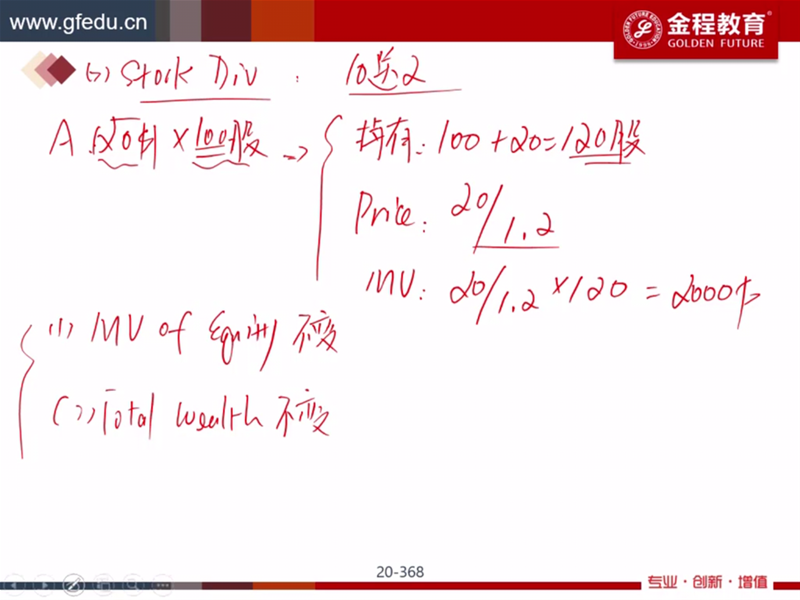 www.gfedu.cn
金程教育®
GOLDEN FUTURE
Stock Div : 10送2
A 20 × 100股 => { 持有: 100+20=120股
Price: 20/1.2
MV: 20/1.2 × 120 = 2000
(1) MV of Equity 不变
(2) Total wealth 不变
20-368
专业·创新·增值